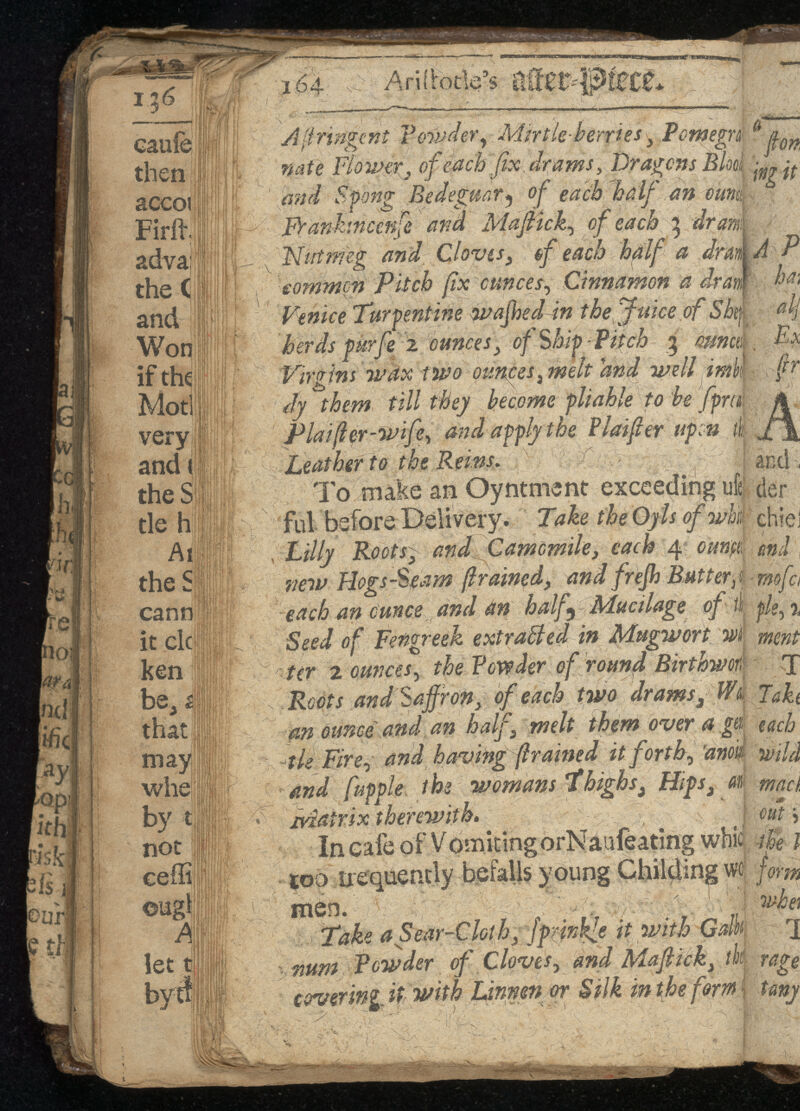 164 Ariſtotle's after-Piece.
Aſtringent Powder, Mirtle-berries, Pomegra
nate Flower, of each ſix drams, Dragons Bloo
and Spong Bedeguar, of each half an ounc
Frankincenſe and Maſtick, of each 3 dram
Nutmeg and Cloves, of each half a dram
common Pitch ſix ounces, Cinnamon a dram
Venice Turpentine waſhed in the Juice of Shep
herds purſe 2 ounces, of Ship-Pitch 3 ounce
Virgins wax two ounces, melt and well imbo
dy them till they become pliable to be ſprea
Plaiſter-wiſe, and apply the Plaiſter upon th
Leather to the Reins.
To make an Oyntment exceeding uſe
ful before Delivery. Take the Oyls of whit
Lilly Roots, and Camomile, each 4 ounce
new Hogs-Seam ſtrained, and freſh Butter,
each an ounce and an half, Mucilage of th
Seed of Fengreek extracted in Mugwort wa
ter 2 ounces, the Powder of round Birthwort
Roots and Saffron, of each two drams, Wa
an ounce and an half, melt them over a gen
tle Fire, and having ſtrained it forth, anoin
and ſupple the womans Thighs, Hips, an
Matrix therewith.
In caſe of Vomiting or Nauſeating whic
too frequently befalls young Childing wo
men.
Take a Sear-Cloth, ſprinkle it with Galba
num Powder of Cloves, and Maſtick, the
covering it with Linnen or Silk in the form
136
cauſe
then
accor
Firſt,
adva
the
and
Won
if the
Moth
very
and
the S
tle h
the S
cann
it
ken
be,
that
may
whe
by t
not
ceſſi
ough
A
let t
ſton
ing it
A P
ha
alſ
Ex
ſtr
A
and
der
chief
and
moſc
ple,
ment
T
Take
each
wild
mac
out
the
form
when
T
rage
tany